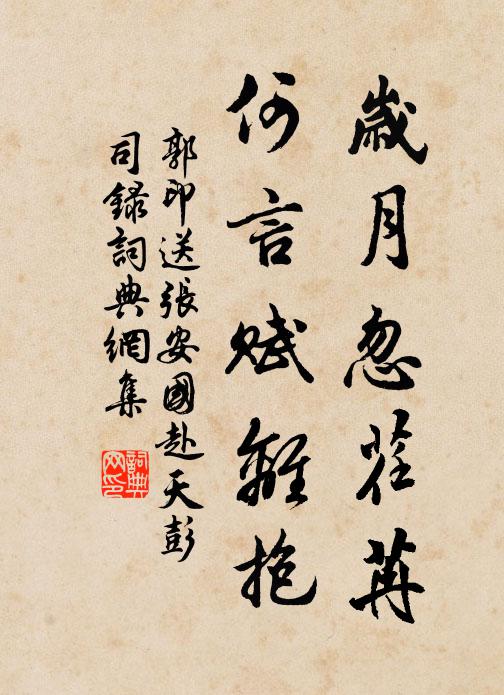 歲月忽荏苒
何言賦離抱
郭印送張安國赴天彭
司錄詞典網集
詞典
网印